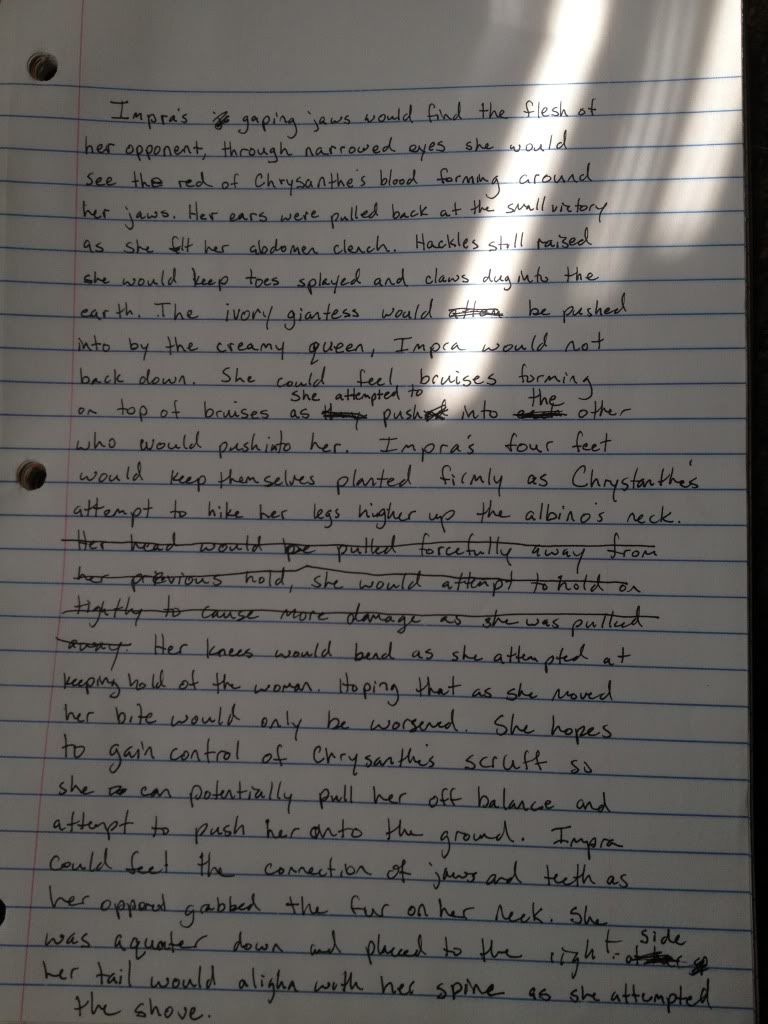 Impra's gaping jaws would find the flesh of
her opponent, through narrowed eyes she would
see the red of Chrysanthe's blood forming around
her jaws. Her ears were pulled back at the small victory
as she felt her abdomen clench. Hackles still raised
she would keep toes splayed and claws dug into the
earth. The ivory giantess would be pushed
into by the creamy queen, Impra would not
back down. She could feel bruises forming
on top of bruises as she attempted to push into the other
who would push into her. Impra's four feet
would keep themselves planted firmly as Chrystanthe's
attempt to hike her legs higher up the albino's neck.
Her head would be pulled forcefully away from
her previous hold, she would attempt to hold on
tightly to cause more damage as she was pulled
away. Her knees would bend as she attempted at
keeping hold of the woman. Hoping that as she moved
her bite would only be worsened. She hopes
to gain control of Chrysanthe's scruff so
she can potentially pull her off balance and
attempt to push her onto the ground. Impra
could feel the connection of jaws and teeth as
her oppont gabbed the fur on her neck. She
was a quater down and placed to the right side
her tail would alighn with her spine as she attempted
the shove.